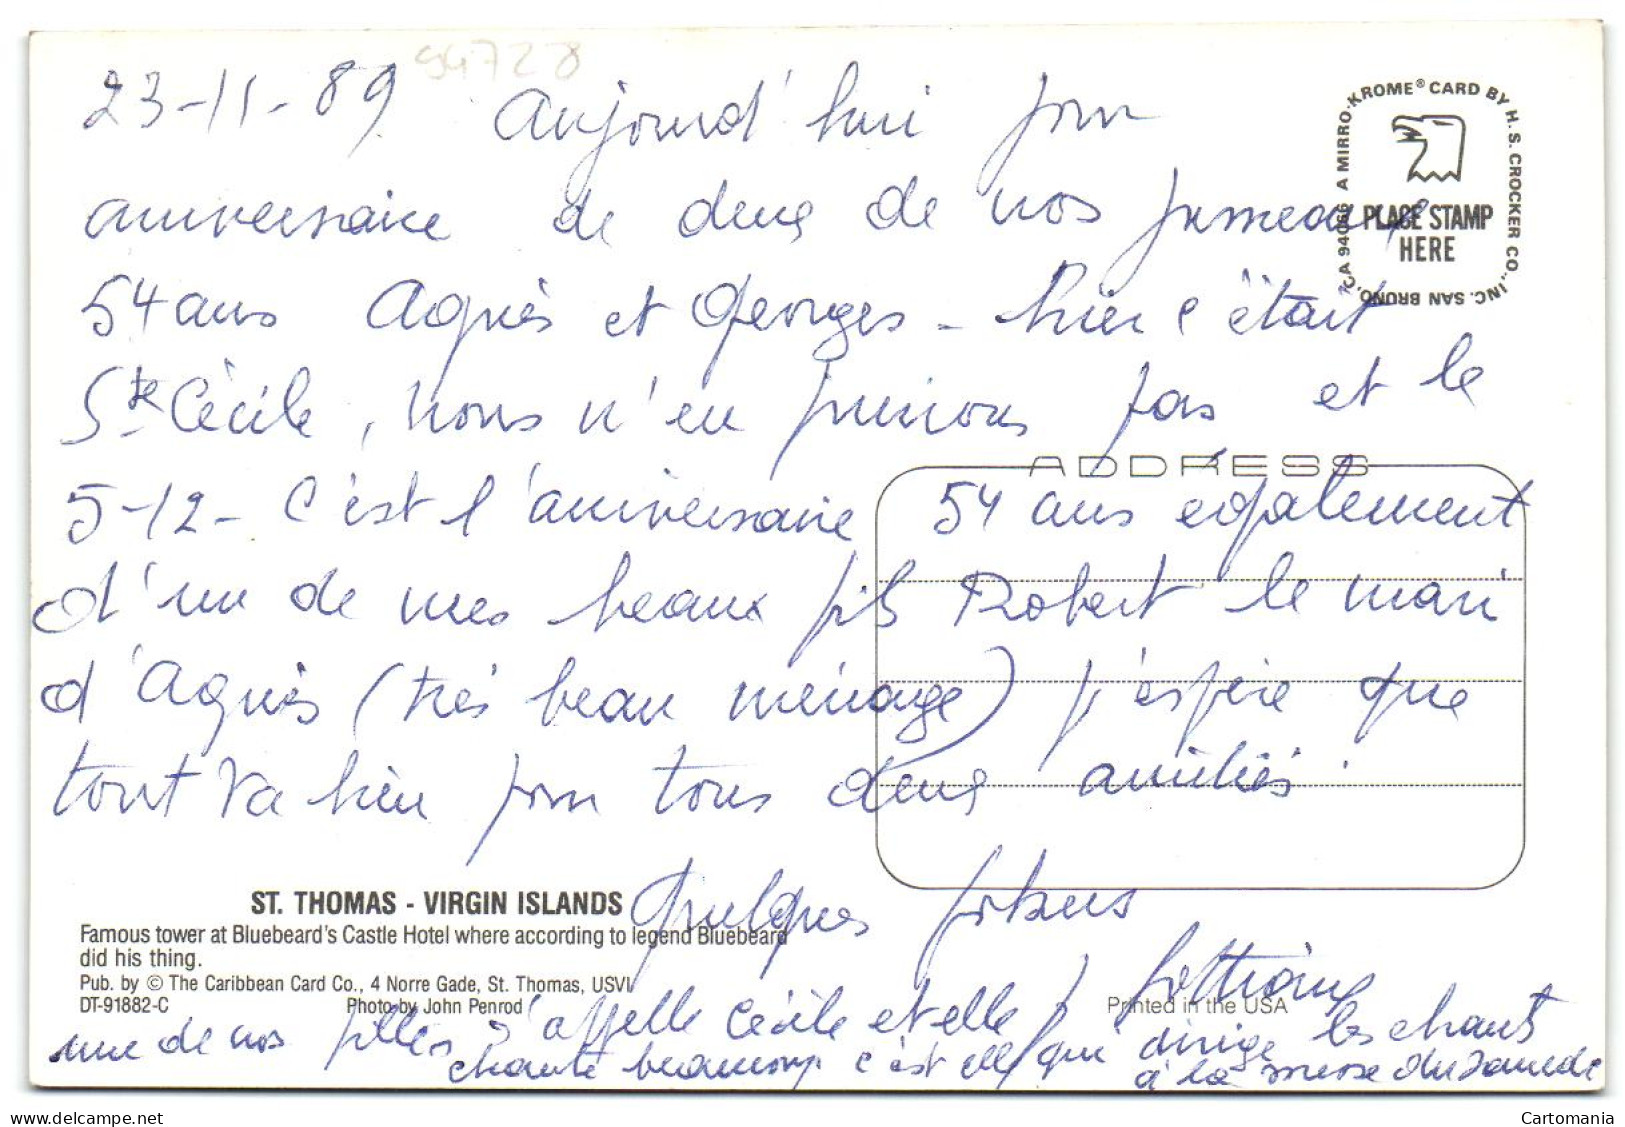 94728
23-11-89 Aujourd'hui jour
anniversaire de deux de nos jumeaux
54 ans Agnès et Georges - hier c'était
Ste Cécile, nous n'en jumions pas et le
5-12- c'est l'anniversaire 54 ans également
d'un de mes beaux fils Robert le mari
d'Agnès (très beau ménage) j'espère que
tout va bien pour tous deux amitiés.
Quelques
une de nos filles s'appelle Cécile et elle
chante beaucoup c'est elle qui dirige les chants
à la messe du Samedi
A MIRRO-KROME® CARD BY H. S. CROCKER CO., INC. SAN BRUNO, CA 94066
PLACE STAMP
HERE
ADDRESS
ST. THOMAS - VIRGIN ISLANDS
Famous tower at Bluebeard's Castle Hotel where according to legend Bluebeard
did his thing.
Pub. by © The Caribbean Card Co., 4 Norre Gade, St. Thomas, USVI
DT-91882-C Photo by John Penrod Printed in the USA
Cartomania